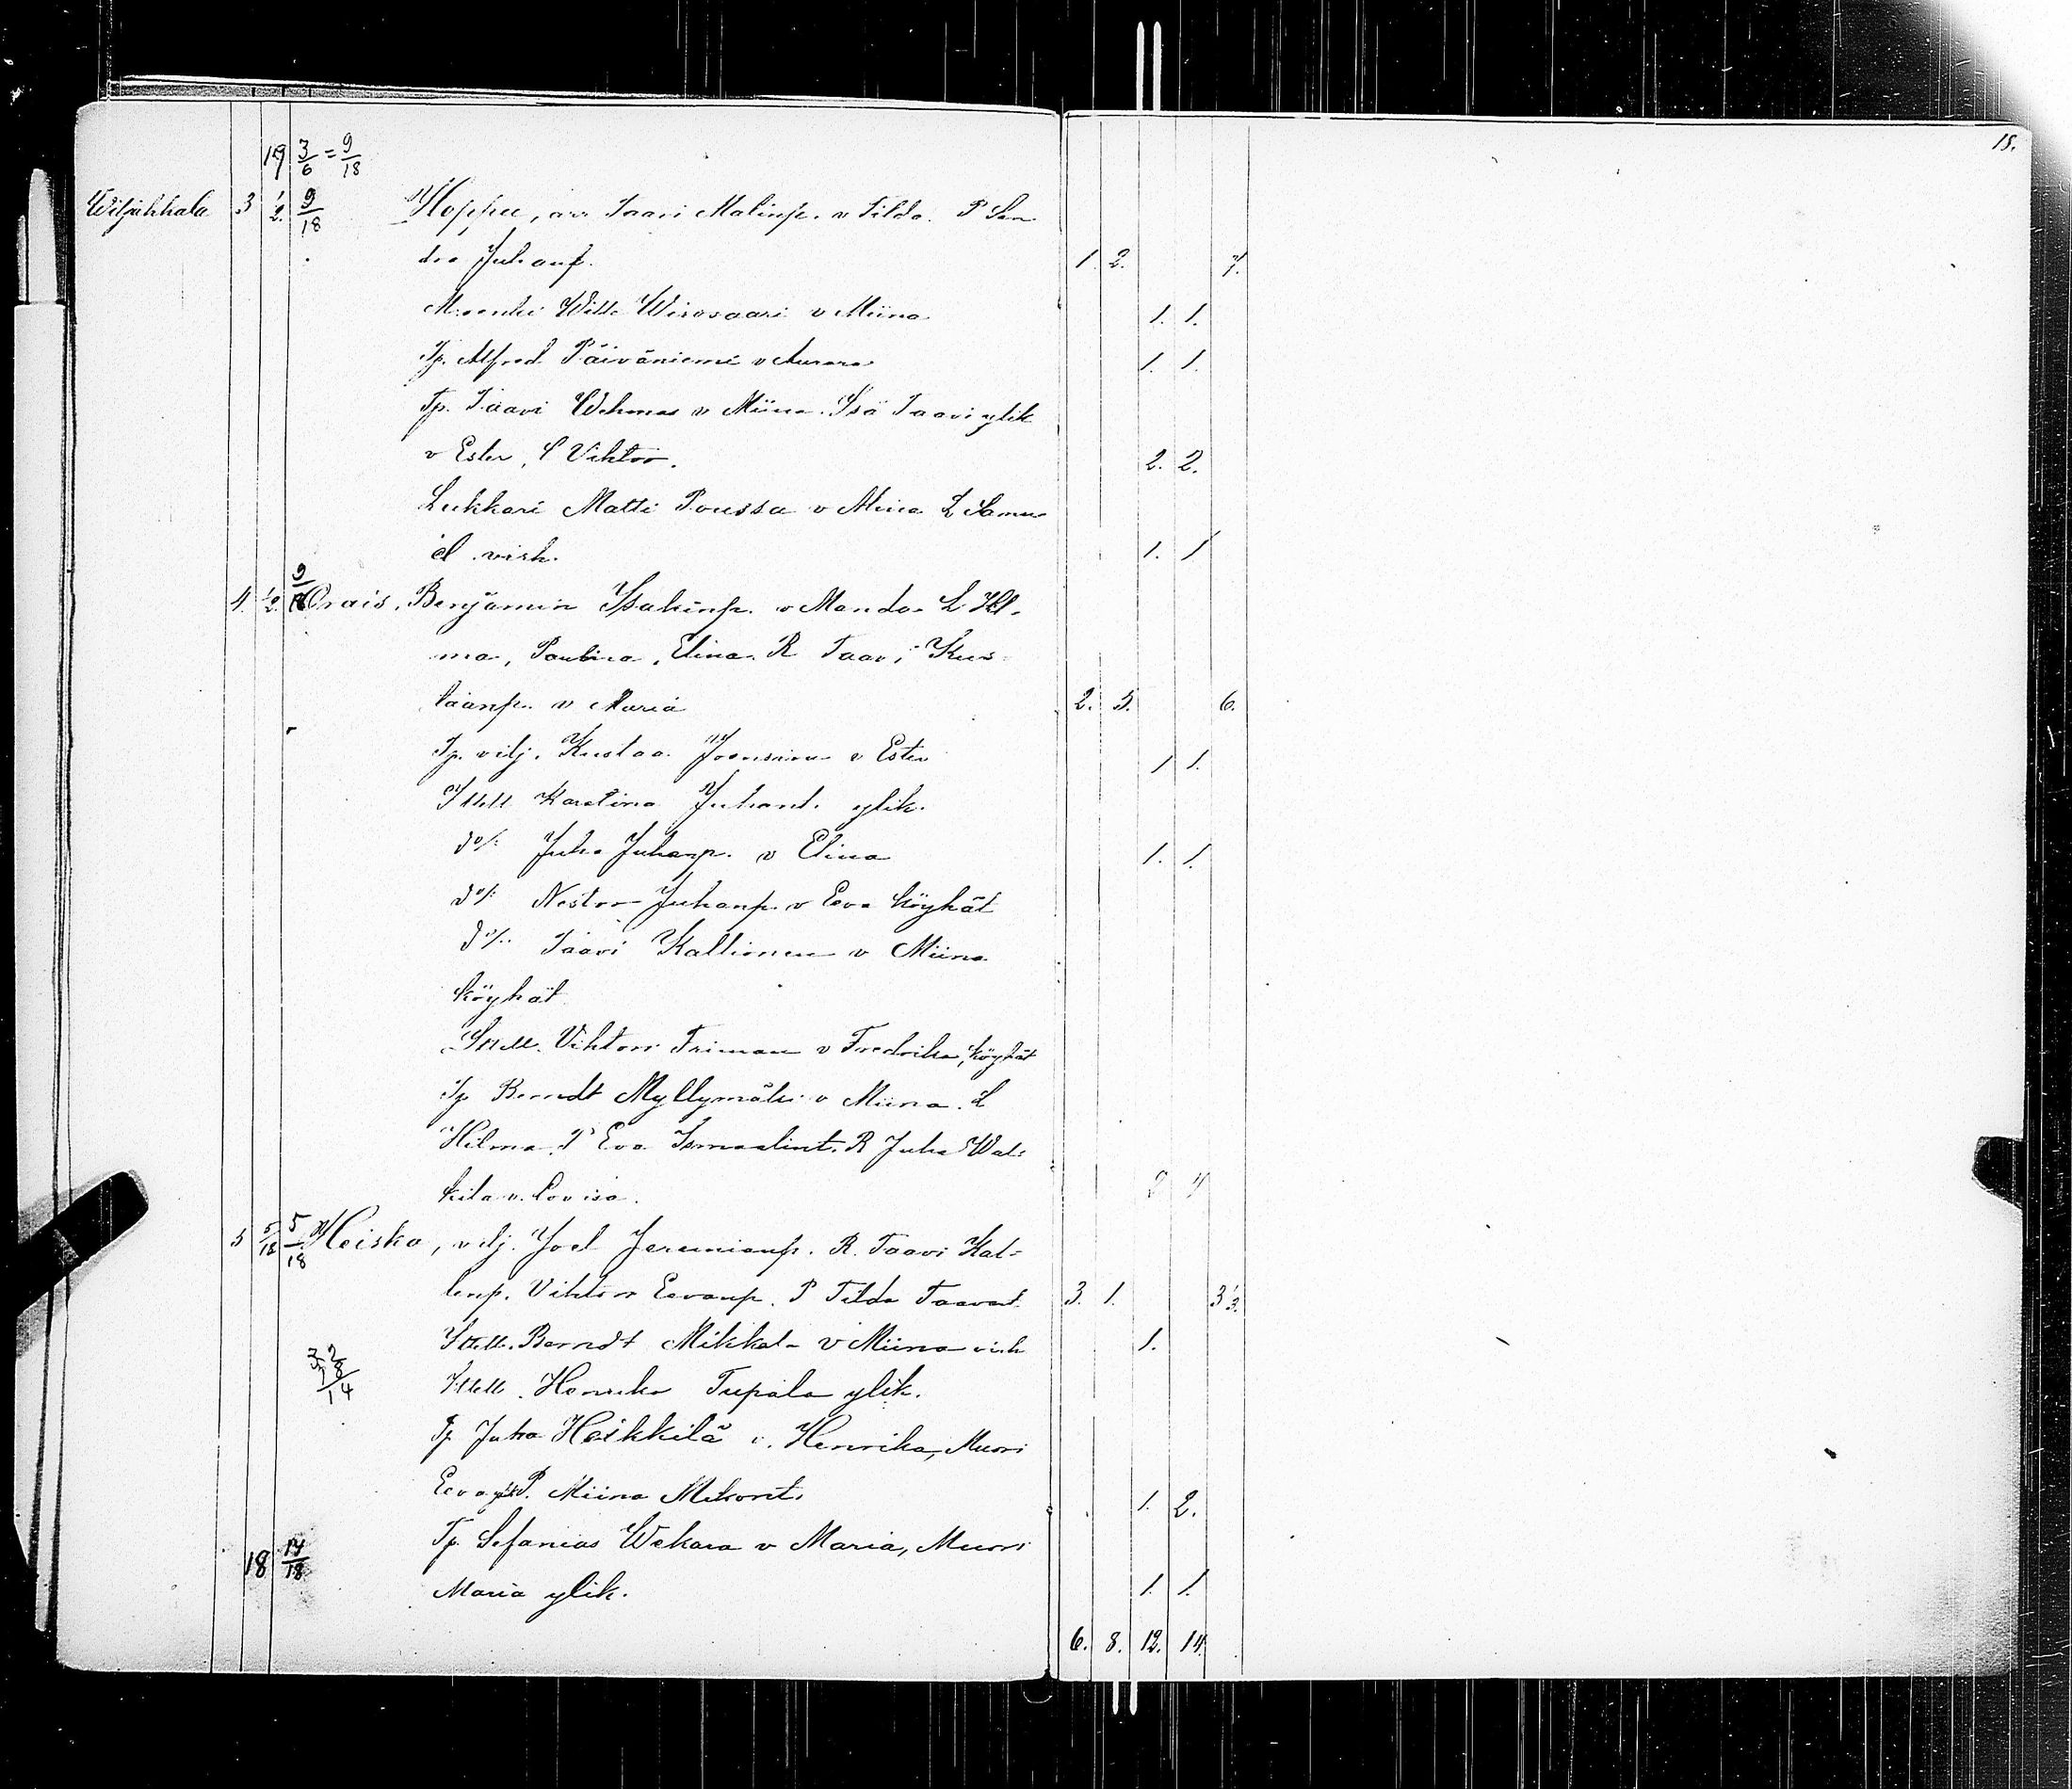 18.
19 3/6 = 9/18
Wiljakkala 3 1/2 9/18 Hoppu, arr Taavi Matinp. v Tilda. P San
dra Juhanp. 1. 2. 4.
Mäenki Wille Wirosaari v Miina 1. 1.
Tp. Alfred Päiväniemi v Aurora 1. 1.
Tp. Taavi Wehmas v Miina. Isä Taavi ylik
v Ester, P Viktor. 2. 2.
Lukkari Matti Poussa v Miina L Samu
el virk. 1. 1
4. 1/2 9/18 Orais, Benjamin Isakinp. v Manda L Hil-
ma, Paulina, Elina. R Taavi Kus-
taanp. v Maria 2. 5. 6.
Tp. vilj. Kustaa Joensuu v Ester 1 1.
Ittell Karolina Juhant. ylik.
do/: Juha Juhanp. v Elina 1. 1.
do/: Nestor Juhanp. v Eeva köyhät
do/: Taavi Kallionen v Miina
köyhät
Ittell. Vihtori Friman v Fredrika, köyhät
Tp Berndt Myllymäki v Miina. L
Hilma. P Eva Ismaelint. R Juha Wal-
kila v. Lovisa. 2 4
5 5/18 5/18 Heiska, vilj. Joel Jeremianp. R. Taavi Kal-
lenp. Vihtori Eevanp. P Tilda Taavet. 3. 1. 3 1/3.
Ittell. Berndt Mikkal- v Miina virk 1.
Ittell. Henrika Tupala ylik.
Tp Juha Heikkilä v. Henrika, Muori
Eeva ylik P. Miina Mikont. 1. 2.
Tp. Sefanias Wekara v Maria, Muori
18 14/18 Maria ylik. 1. 1.
6. 8. 12. 14.